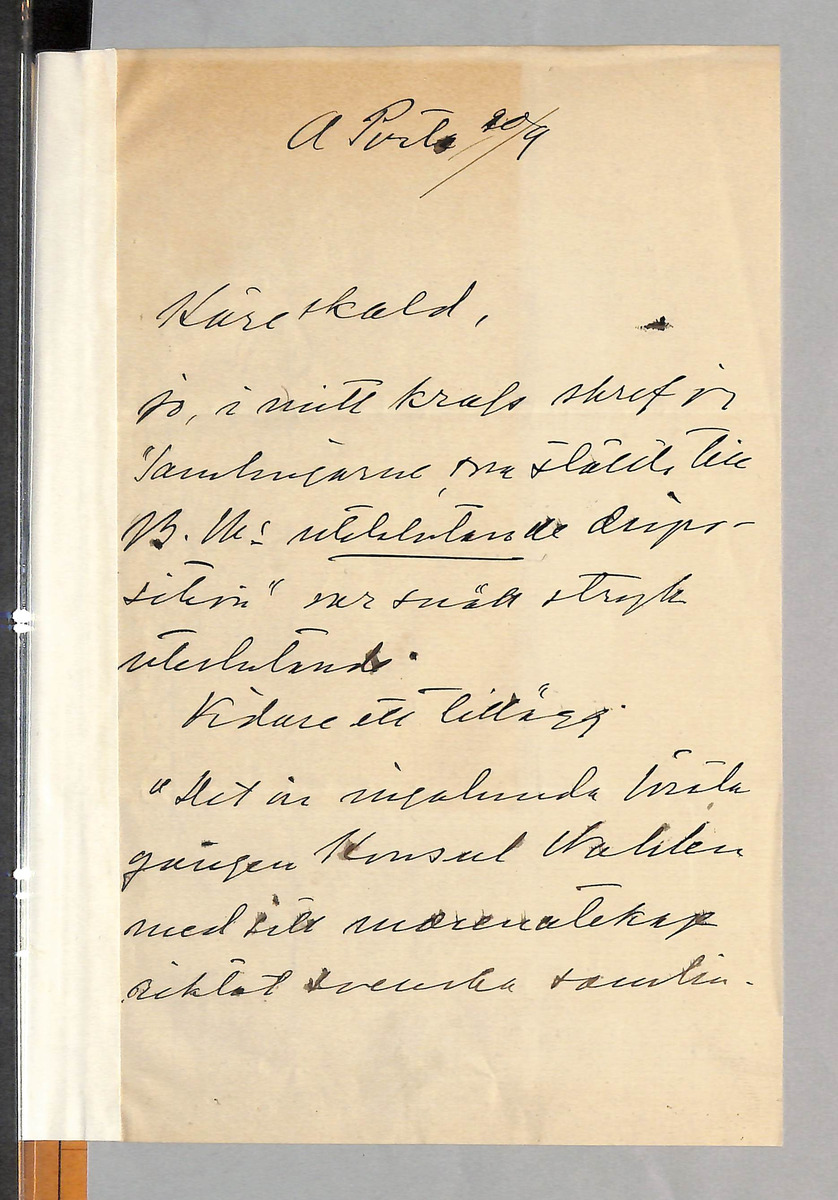 A Porta 20/9
Käre skald,
jo, i mitt krafs skref jag
"Samlingarne, som ställts till
B. M:s uteslutande dispo-
sition" var snäll stryk
uteslutande.
Vidare ett tillägg:
"Det är ingalunda första
gången Konsul Wahlen
med sitt mecenatskap
riktat svenska samlin-